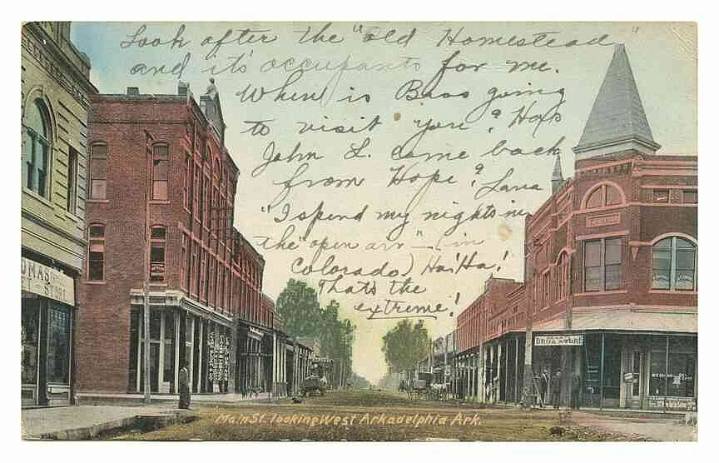 Look after the "old Homestead"
and it's occupants for me.
When is Bass going
to visit you? Has
John L. come back
from Hope? Lava
"I spend my nights in
the open air" – (in
Colorado) Ha! Ha!
That's the
extreme!
OMAS
DRUG STORE
Main St. looking West Arkadelphia Ark.